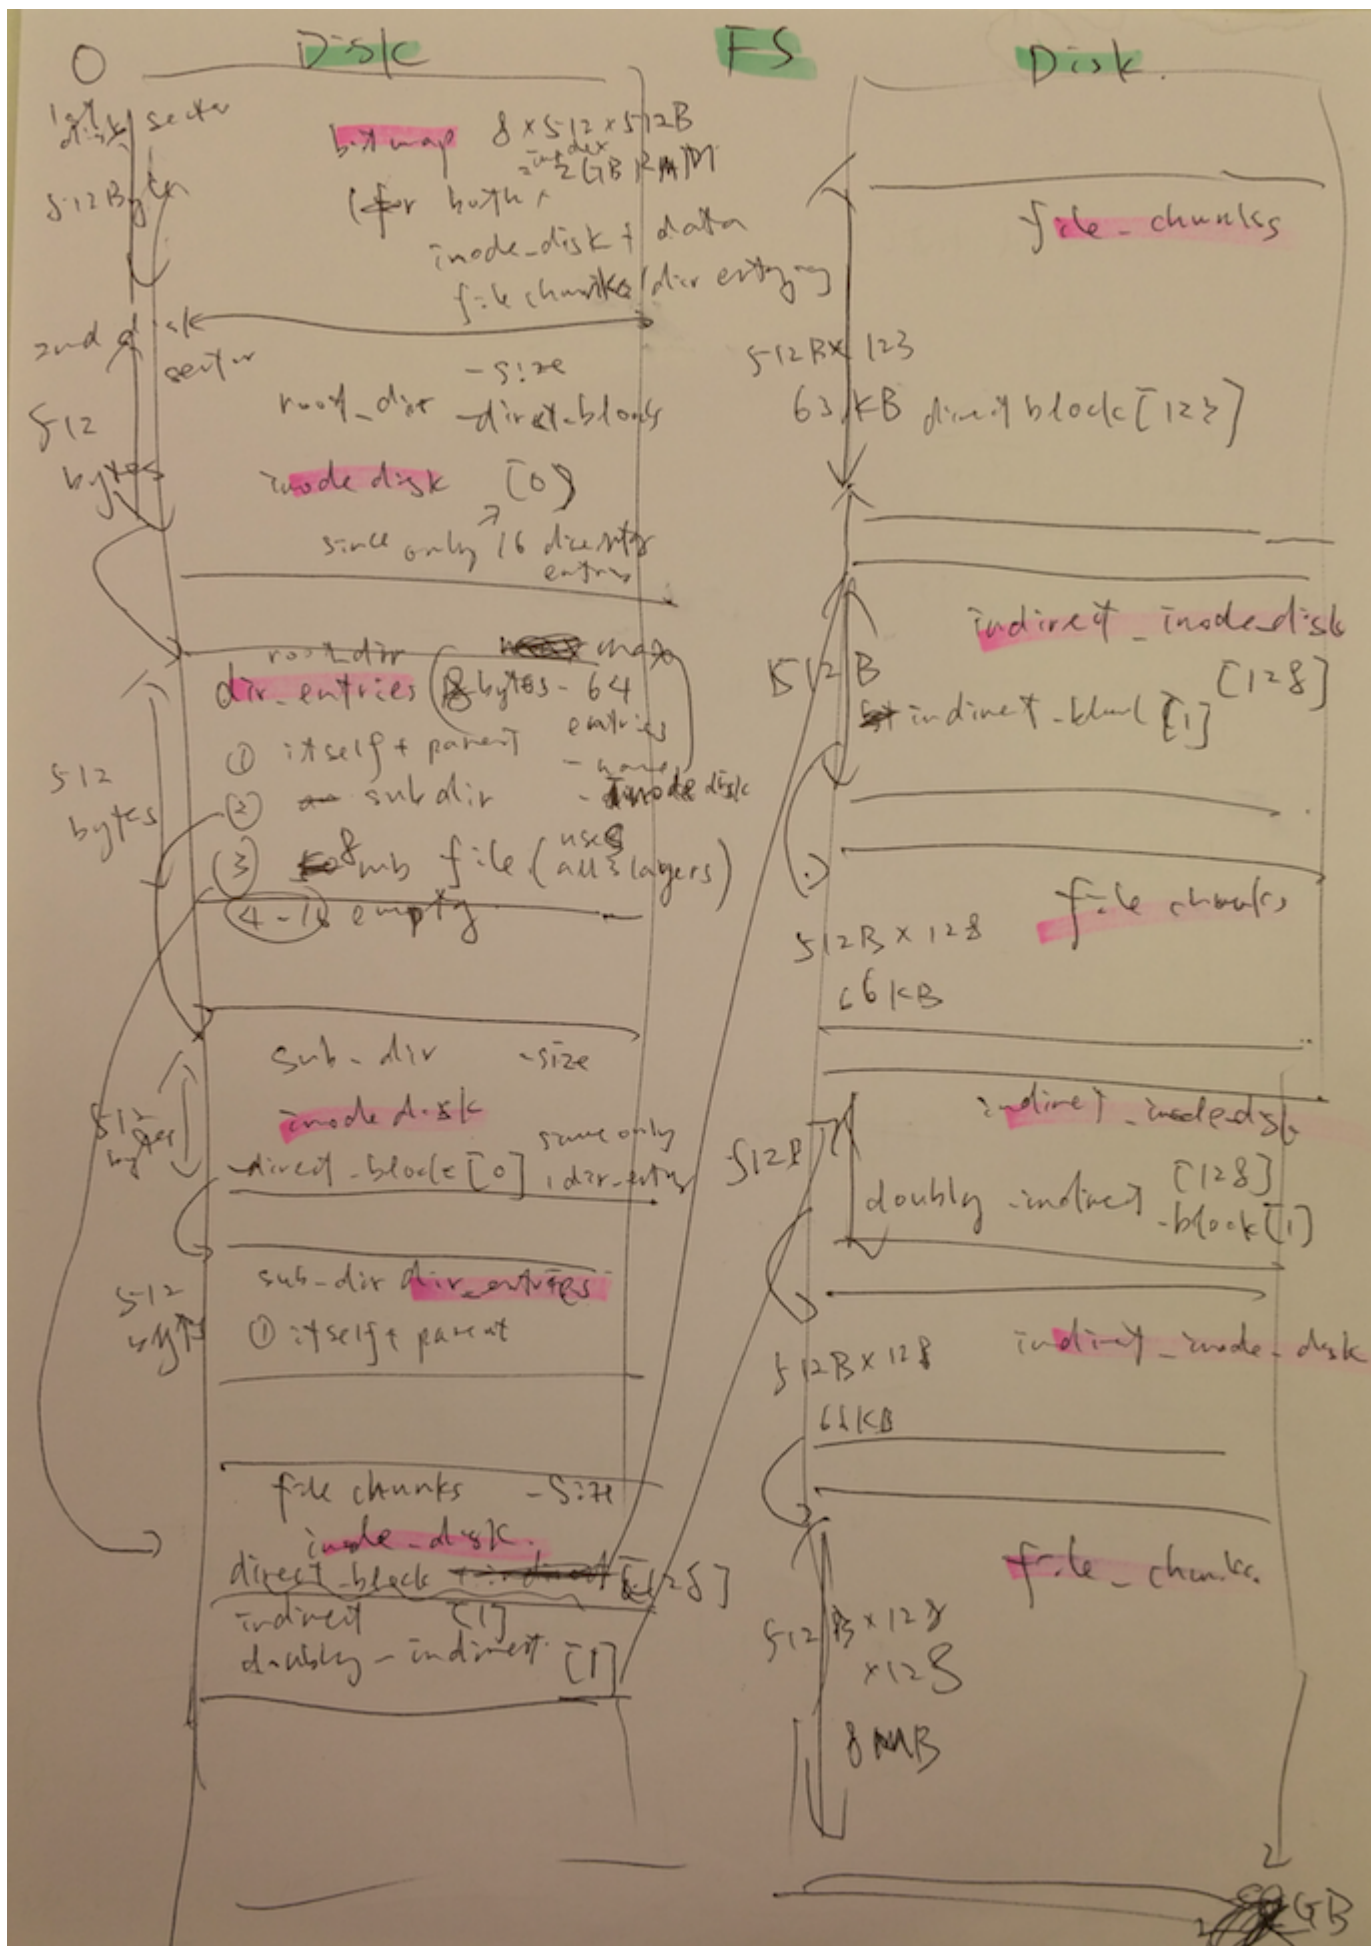 O Disk FS Disk
1st disk sector
512 Byte
bitmap 8 × 512 × 512B
index
2GB RAM
(for both
inode_disk + data
file chunks/dir
2nd disk
sector
512
bytes
root_dir - size
- direct_blocks
inode disk [0]
since only 16
entries
root_dir max
dir_entries 8 bytes - 64
entries
① itself + parent - name
② sub dir - inode disk
③ 8 mb file (uses
all 3 layers)
4-16 empty
512
bytes
sub_dir - size
inode disk
512
bytes
direct_block [0] since only
1 dir_entry
sub_dir dir_entries
① itself + parent
512
bytes
file chunks - size
inode_disk
direct_block [128]
indirect [1]
doubly-indirect [1]
file_chunks
512B × 123
63 KB direct block [123]
indirect_inode_disk
[128]
512B
indirect_block [1]
file chunks
512B × 128
66 KB
indirect_inode_disk
[128]
512B
doubly-indirect
-block [1]
indirect_inode_disk
512B × 128
KB
file_chunks
512B × 128
× 128
8 MB
2 GB